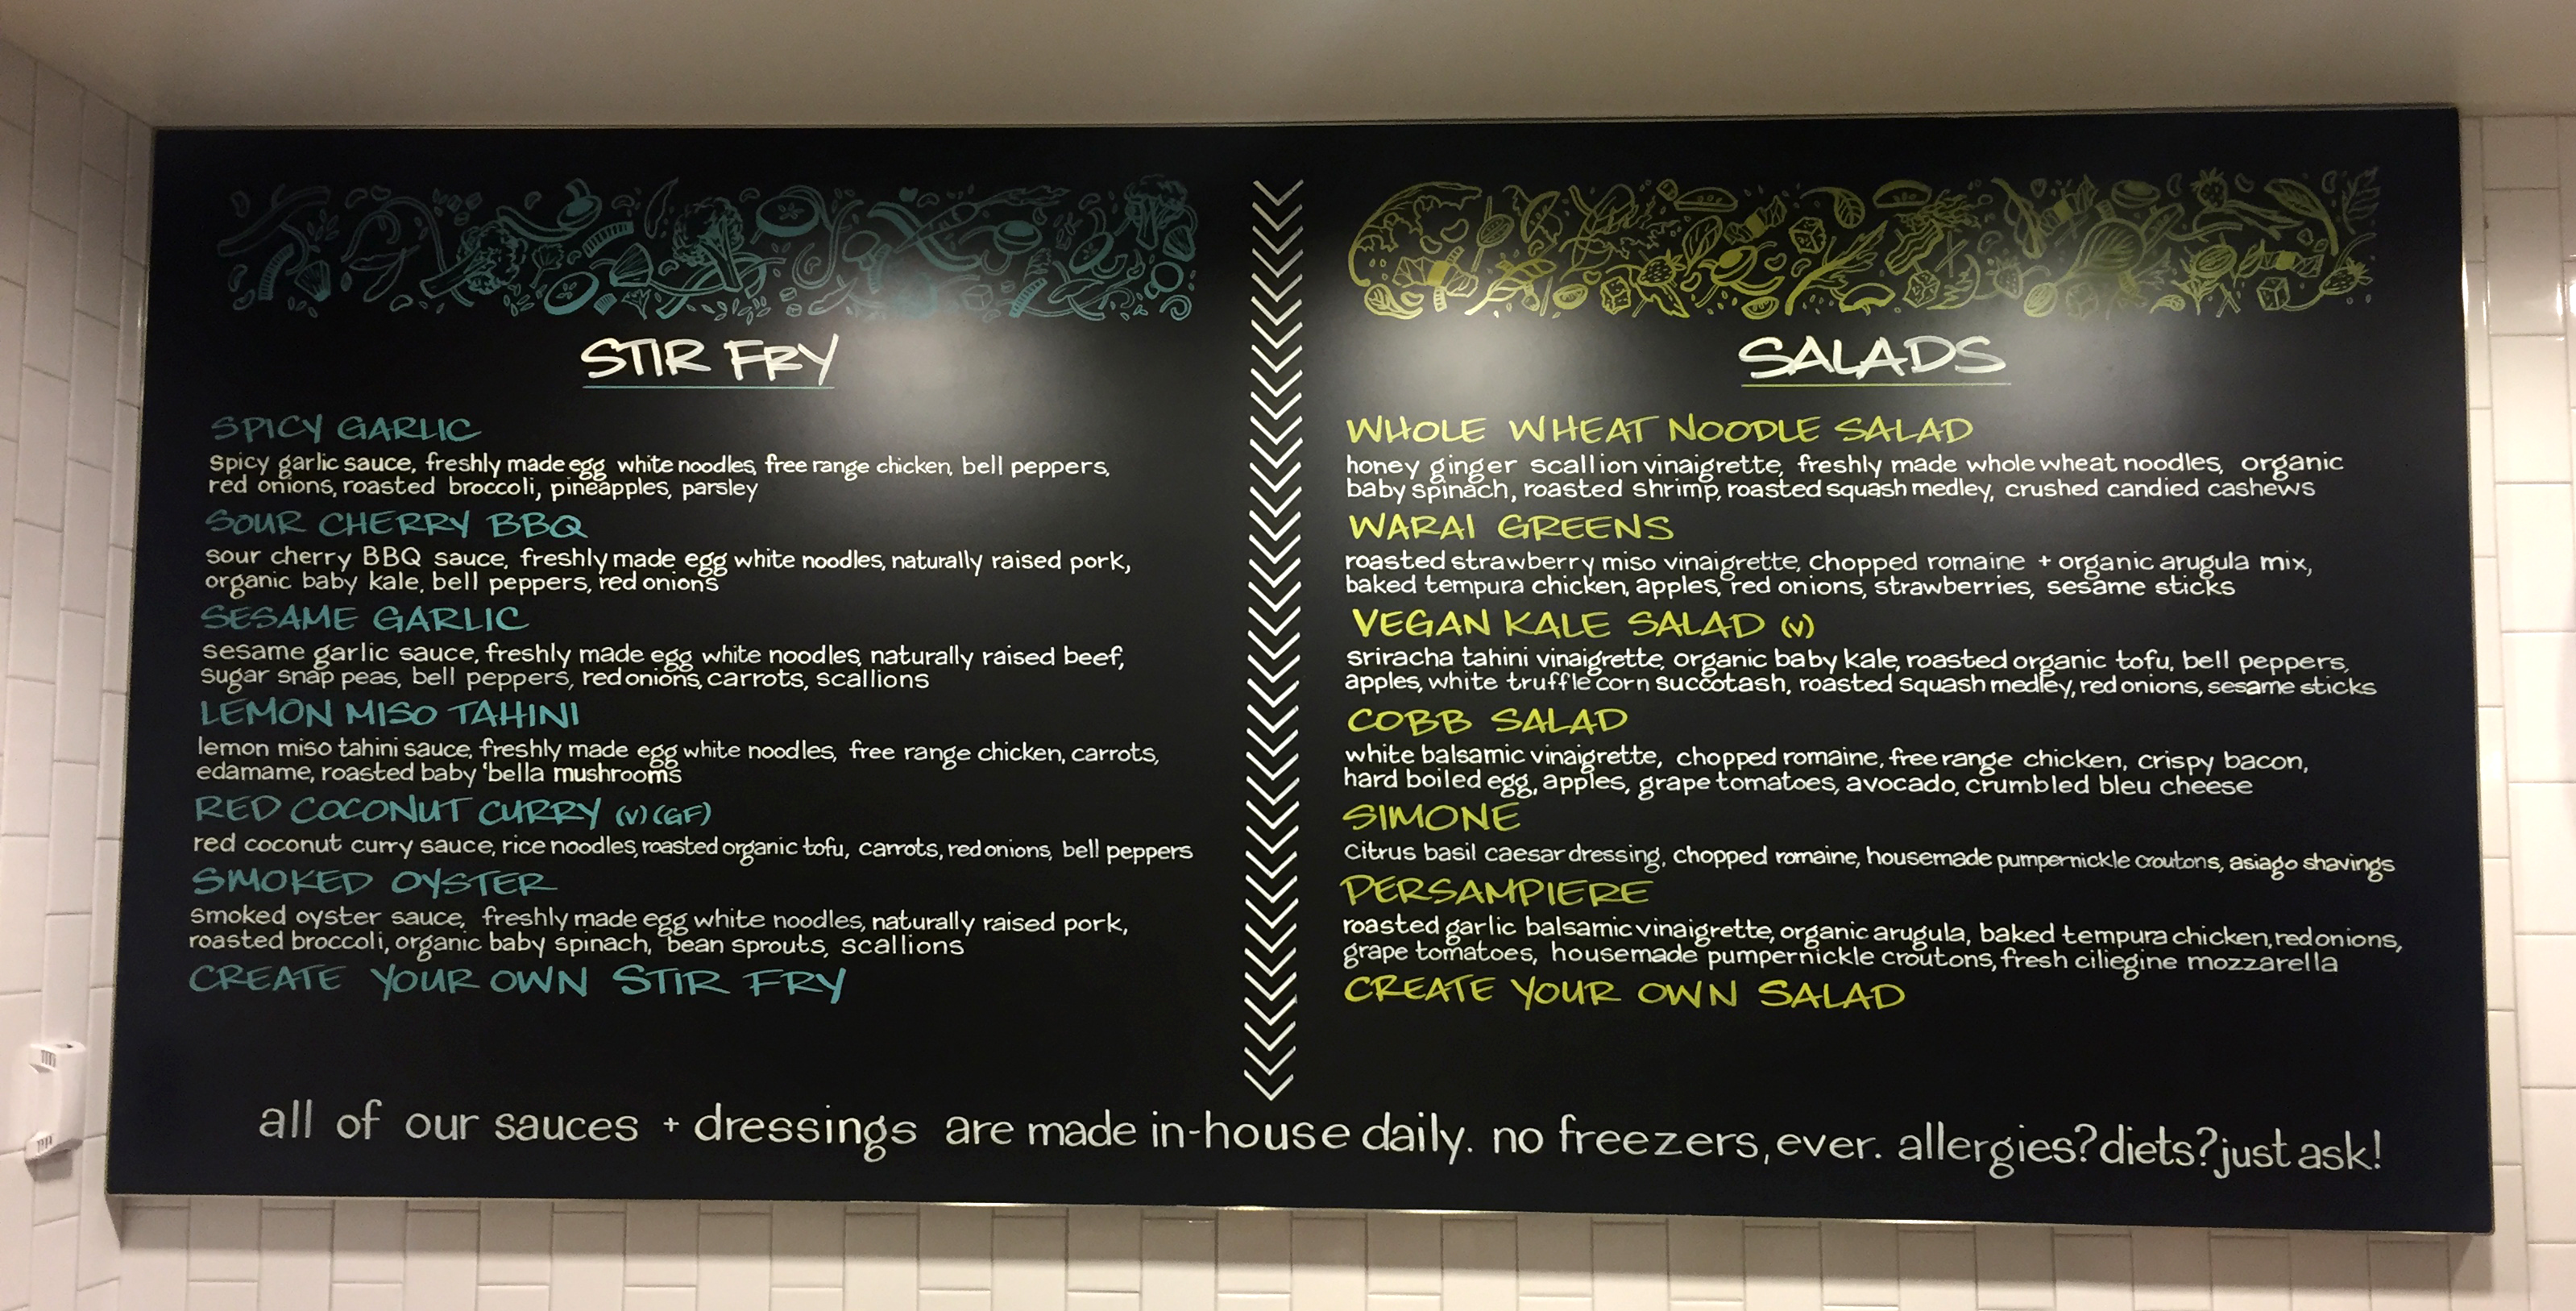 STIR FRY
SPICY GARLIC
spicy garlic sauce, freshly made egg white noodles, free range chicken, bell peppers,
red onions, roasted broccoli, pineapples, parsley
SOUR CHERRY BBQ
sour cherry BBQ sauce, freshly made egg white noodles, naturally raised pork,
organic baby kale, bell peppers, red onions
SESAME GARLIC
sesame garlic sauce, freshly made egg white noodles, naturally raised beef,
sugar snap peas, bell peppers, red onions, carrots, scallions
LEMON MISO TAHINI
lemon miso tahini sauce, freshly made egg white noodles, free range chicken, carrots,
edamame, roasted baby 'bella mushrooms
RED COCONUT CURRY (V) (GF)
red coconut curry sauce, rice noodles, roasted organic tofu, carrots, red onions, bell peppers
SMOKED OYSTER
smoked oyster sauce, freshly made egg white noodles, naturally raised pork,
roasted broccoli, organic baby spinach, bean sprouts, scallions
CREATE YOUR OWN STIR FRY
SALADS
WHOLE WHEAT NOODLE SALAD
honey ginger scallion vinaigrette, freshly made whole wheat noodles, organic
baby spinach, roasted shrimp, roasted squash medley, crushed candied cashews
WARAI GREENS
roasted strawberry miso vinaigrette, chopped romaine + organic arugula mix,
baked tempura chicken, apples, red onions, strawberries, sesame sticks
VEGAN KALE SALAD (V)
sriracha tahini vinaigrette, organic baby kale, roasted organic tofu, bell peppers,
apples, white truffle corn succotash, roasted squash medley, red onions, sesame sticks
COBB SALAD
white balsamic vinaigrette, chopped romaine, free range chicken, crispy bacon,
hard boiled egg, apples, grape tomatoes, avocado, crumbled bleu cheese
SIMONE
citrus basil caesar dressing, chopped romaine, housemade pumpernickle croutons, asiago shavings
PERSAMPIERE
roasted garlic balsamic vinaigrette, organic arugula, baked tempura chicken, red onions,
grape tomatoes, housemade pumpernickle croutons, fresh ciliegine mozzarella
CREATE YOUR OWN SALAD
all of our sauces + dressings are made in-house daily. no freezers, ever. allergies? diets? just ask!